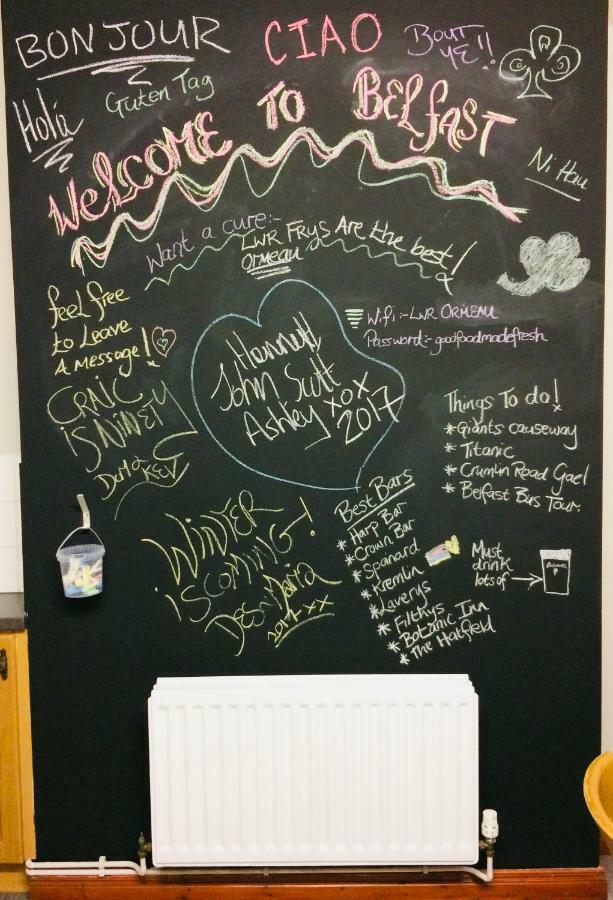 BONJOUR
CIAO
BOUT
YE!!
Hola
Guten Tag
WELCOME TO BELFAST
Ni Hau
Want a cure:-
LWR FRYS Are the best!
ORMEAU
feel free
to Leave
A message!
Wifi:-LWR ORMEAU
Password:-goodfoodmadefresh
John Scott
Ashley xox
2017
CRAIC
iS NINETY
Things To do!
*Giants causeway
*Titanic
*Crumlin Road Gael
*Belfast Bus Tour.
WINTER
iS COMING!
2017 xx
Best Bars
*Harp Bar
*Crown Bar
*Spanard
*Kremlin
*Laverys
*Filthys
*Botanic Inn
*The Hatfield
Must
drink
lots of